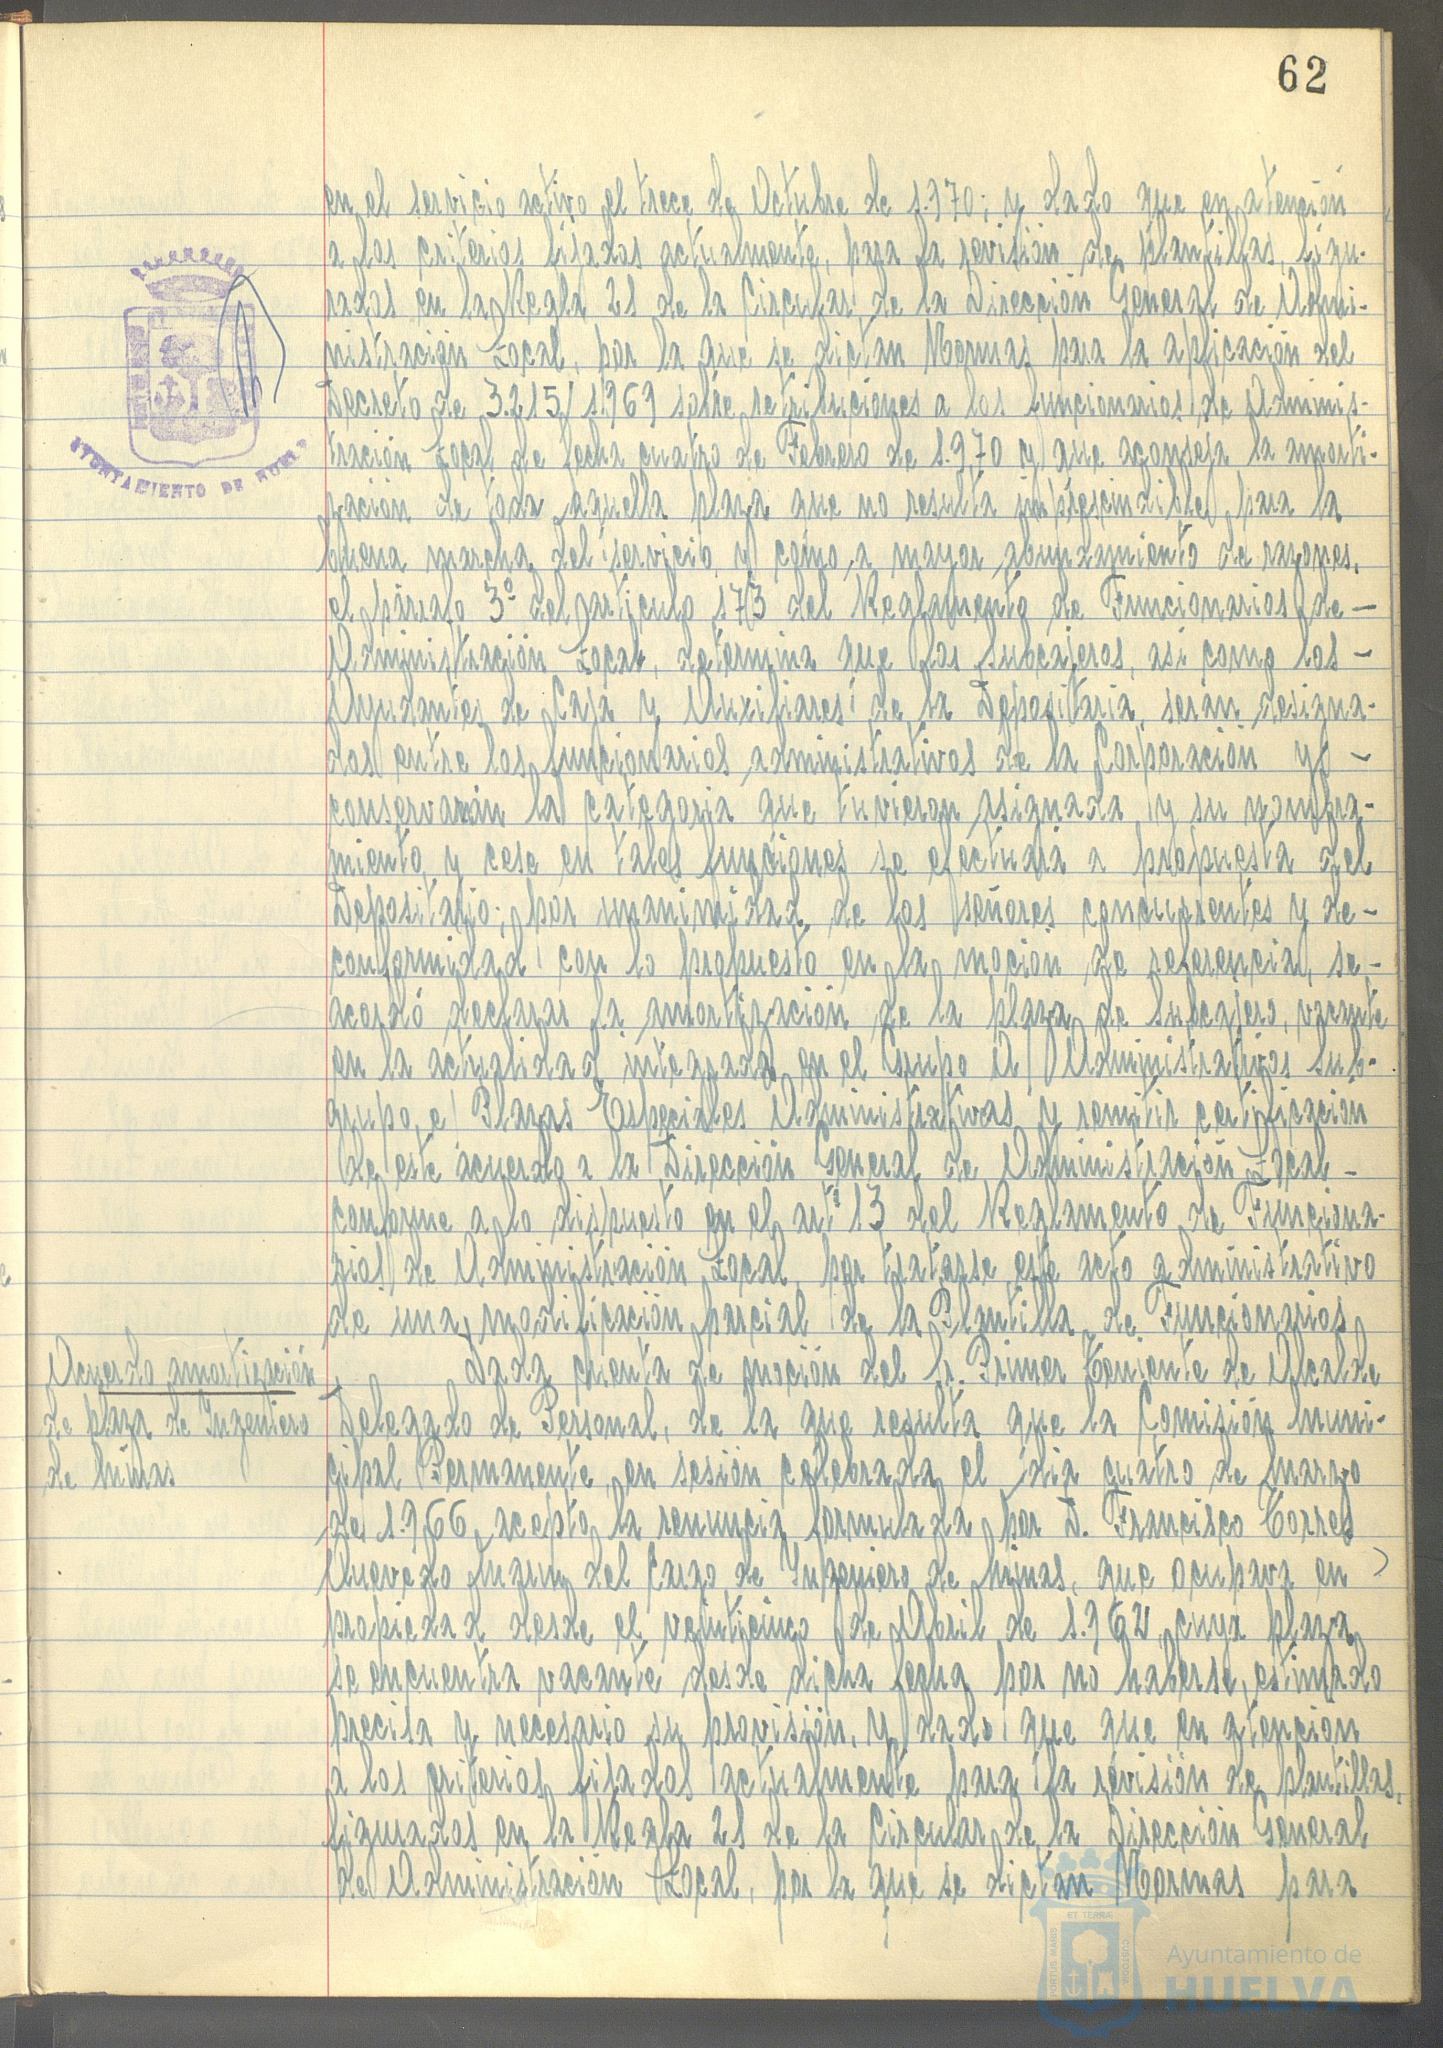 62
en el servicio activo el trece de Octubre de 1.970; y dado que en atención
a los criterios fijados actualmente, para la revisión de plantillas, figu-
radas en la Regla 21 de la Circular de la Dirección General de Admi-
nistración Local, por la que se dictan Normas para la aplicación del
Decreto de 3.215/1.969 sobre retribuciones a los funcionarios de Adminis-
tración Local de fecha cuatro de Febrero de 1.970 y que aconseja la amorti-
zación de toda aquella plaza que no resulta imprescindible para la
buena marcha del servicio, y como a mayor abundamiento de razones,
el párrafo 3º del artículo 173 del Reglamento de Funcionarios de-
Administración Local, determina que los Subcajeros, así como los-
Ayudantes de Caja y Auxiliares de la Depositaria, serán designa-
dos entre los funcionarios administrativos de la Corporación y-
conservarán la categoría que tuvieron asignada y su nombra-
miento y cese en tales funciones se efectuará a propuesta del
Depositario; por unanimidad de los señores concurrentes y de-
conformidad con lo propuesto en la moción de referencia, se-
acordó declarar la amortización de la plaza de Subcajero, vacante
en la actualidad integrada en el Grupo A) Administrativos Sub-
grupo e) Plazas Especiales Administrativas y remitir certificación
de este acuerdo a la Dirección General de Administración Local-
conforme a lo dispuesto en el artº 13 del Reglamento de Funciona-
rios de Administración Local, por tratarse este acto administrativo
de una modificación parcial de la Plantilla de Funcionarios
Acuerdo amortización
de plaza de Ingeniero
de Minas
Dada cuenta de moción del Sr. Primer Teniente de Alcalde
Delegado de Personal, de la que resulta que la Comisión Muni-
cipal Permanente, en sesión celebrada el día cuatro de Marzo
de 1.966, acepto la renuncia formulada por D. Francisco Torres
Quevedo del Cargo de Ingeniero de Minas, que ocupava en
propiedad desde el veinticinco de Abril de 1.962, cuya plaza
se encuentra vacante desde dicha fecha por no haberse estimado
precisa y necesario su provisión, y dado que que en atención
a los criterios fijados actualmente para la revisión de plantillas,
figurados en la Regla 21 de la Circular de la Dirección General
de Administración Local, por la que se dictan Normas para
AYUNTAMIENTO DE HUELVA
PORTUS MARIS
ET TERRÆ
CUSTODIA
Ayuntamiento de
HUELVA